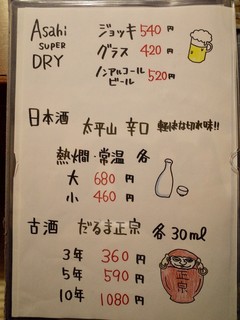 Asahi
SUPER
DRY
ジョッキ 540円
グラス 420円
ノンアルコール
ビール 520円
日本酒
太平山 辛口 軽快な切れ味!!
熱燗・常温 各
大 680円
小 460円
古酒 だるま正宗 各30ml
3年 360円
5年 590円
10年 1080円
正宗